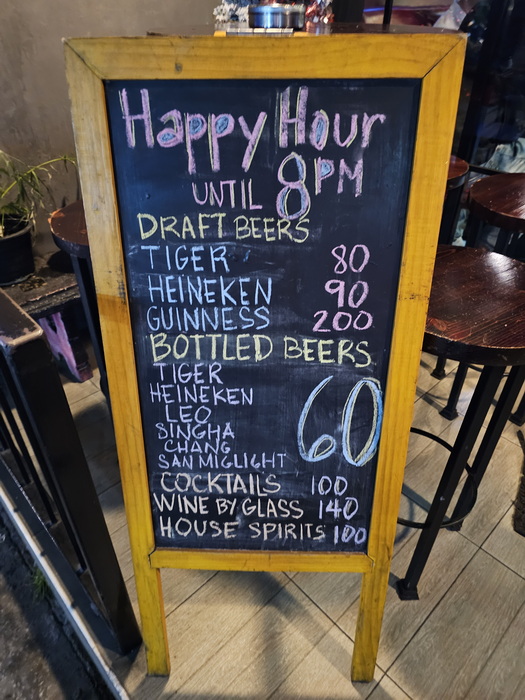 Happy Hour
UNTIL 8PM
DRAFT BEERS
TIGER 80
HEINEKEN 90
GUINNESS 200
BOTTLED BEERS
TIGER
HEINEKEN
LEO
SINGHA 60
CHANG
SAN MIGLIGHT
COCKTAILS 100
WINE BY GLASS 140
HOUSE SPIRITS 100